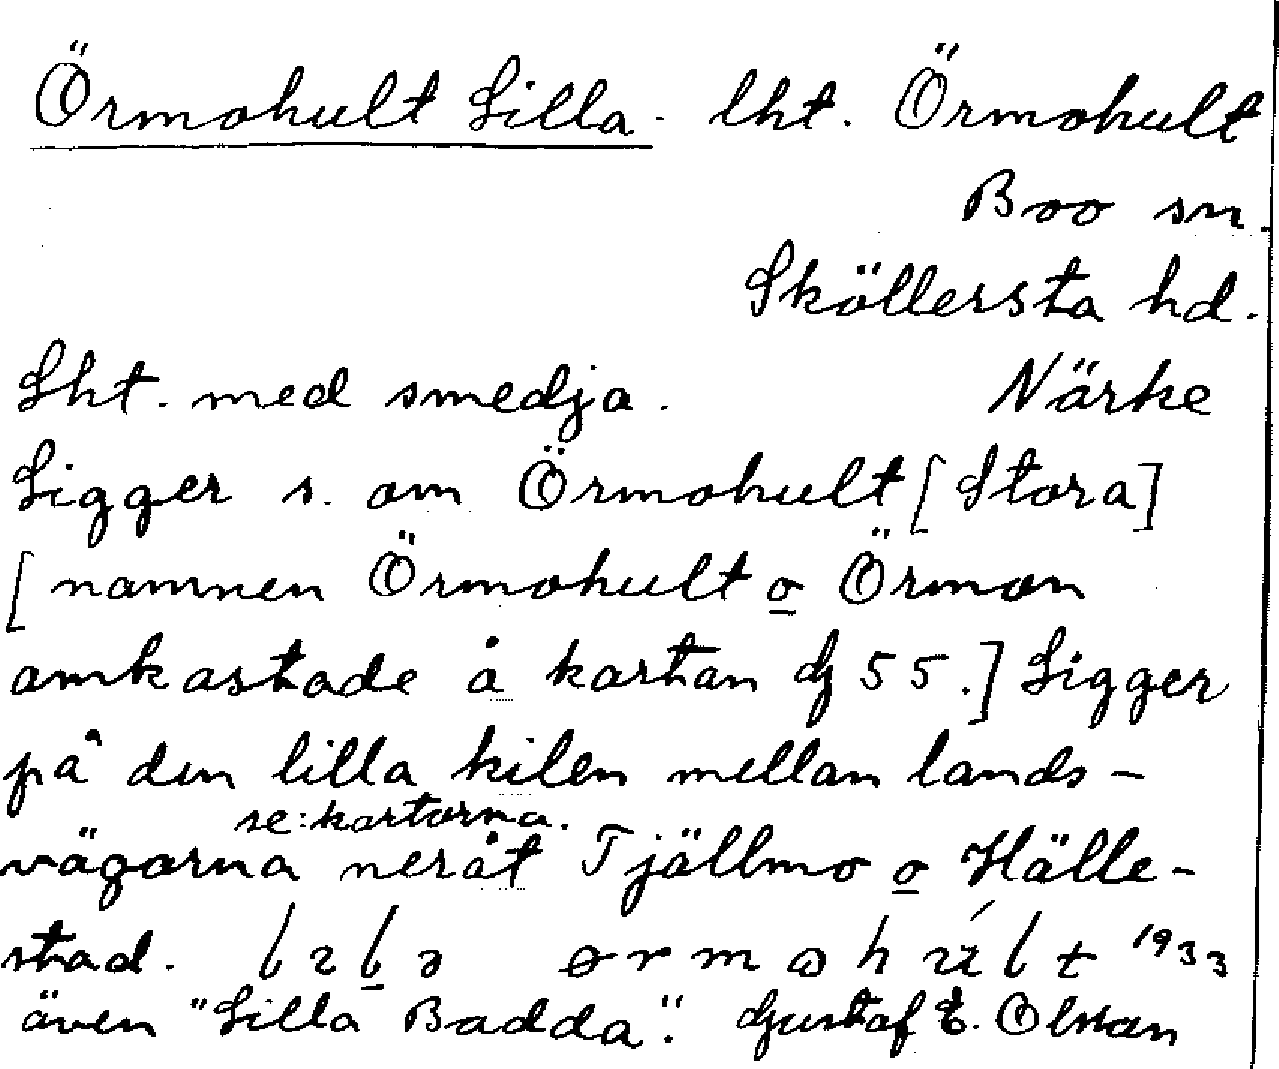 Örmohult Lilla. lht. Örmohult
Boo sn.
Sköllersta hd.
Lht. med smedja. Närke
Ligger s. om Örmohult [Stora]
[namnen Örmohult o Örmon
omkastade å kartan dj 55.] Ligger
på den lilla kilen mellan lands-
se: kartorna.
vägarna neråt Tjällmo o Hälle-
stad. 1933
även "Lilla Badda". Gustaf E. Olsson